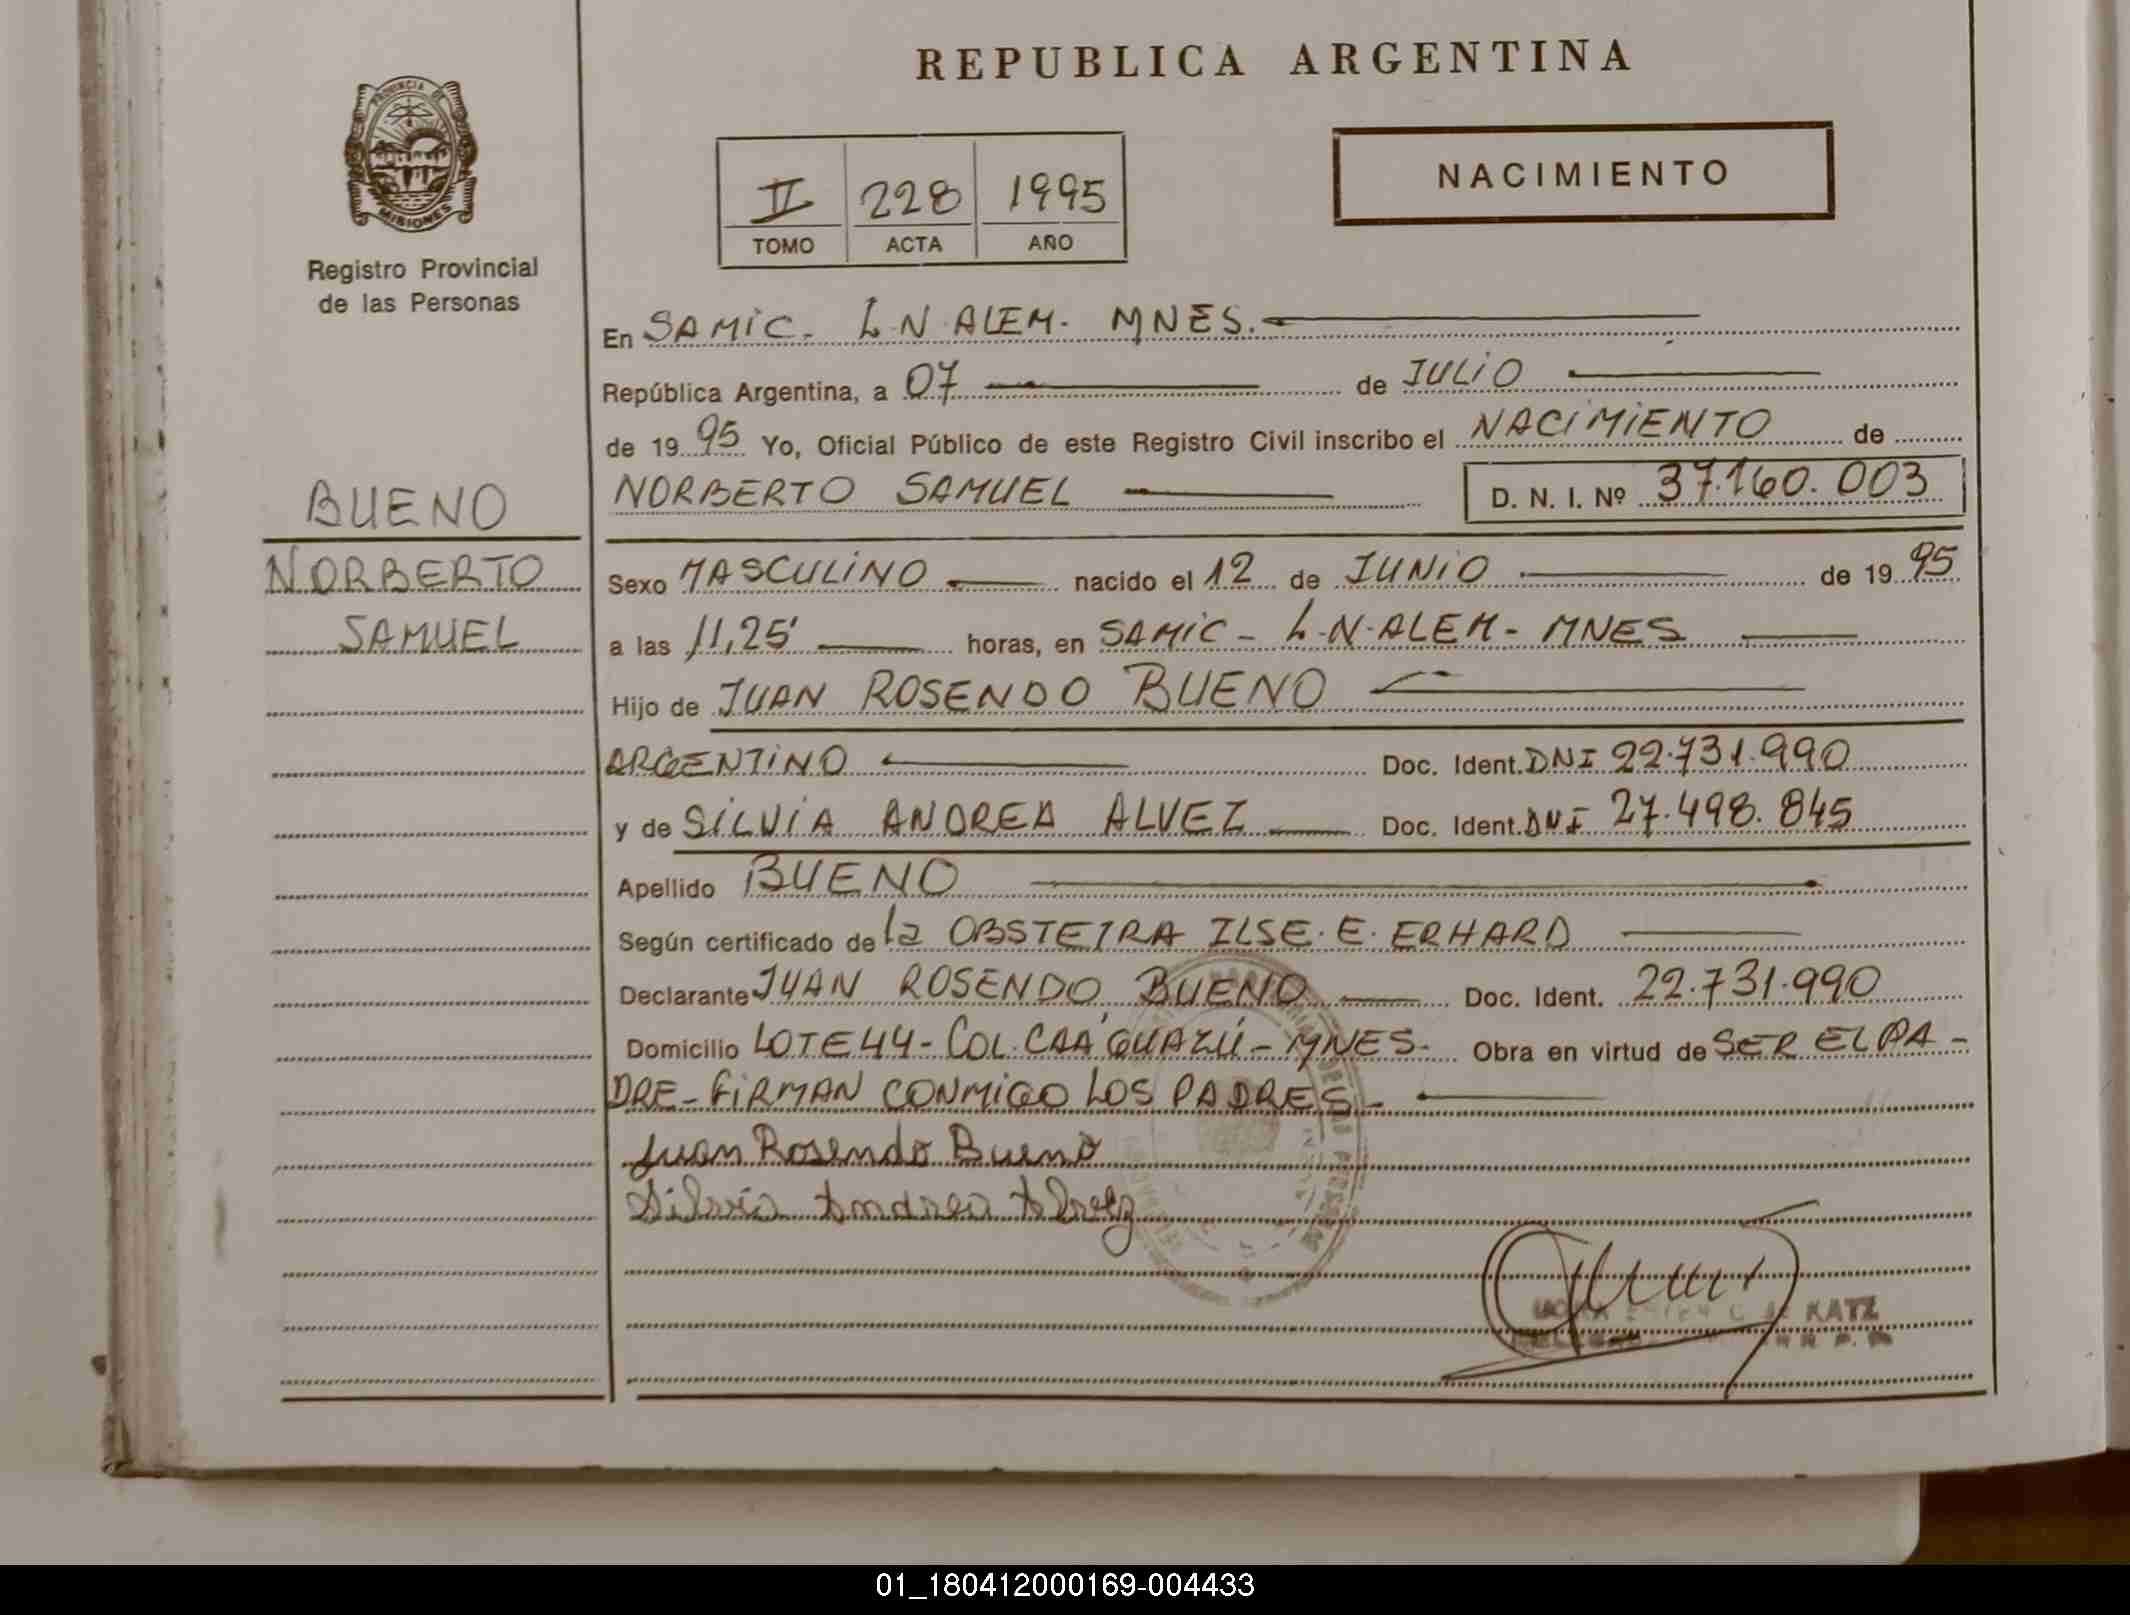 REPUBLICA ARGENTINA
PROVINCIA DE
MISIONES
Registro Provincial
de las Personas
II 228 1995
TOMO ACTA AÑO
NACIMIENTO
En SAMIC. L.N.ALEM. MNES.
República Argentina, a 07 de JULIO
de 1995 Yo, Oficial Público de este Registro Civil inscribo el NACIMIENTO de
NORBERTO SAMUEL D. N. I. Nº 37.160.003
BUENO
NORBERTO
SAMUEL
Sexo MASCULINO nacido el 12 de JUNIO de 1995
a las 11,25' horas, en SAMIC - L.N.ALEM - MNES
Hijo de JUAN ROSENDO BUENO
ARGENTINO Doc. Ident. DNI 22.731.990
y de SILVIA ANDREA ALVEZ Doc. Ident. DNI 27.498.845
Apellido BUENO
Según certificado de la OBSTETRA ILSE. E. ERHARD
Declarante JUAN ROSENDO BUENO Doc. Ident. 22.731.990
Domicilio LOTE 44 - COL. CAA GUAZÚ - MNES. Obra en virtud de SER EL PA-
DRE - FIRMAN CONMIGO LOS PADRES -
Juan Rosendo Bueno
Silvia Andrea Alvez
KATZ
01_180412000169-004433